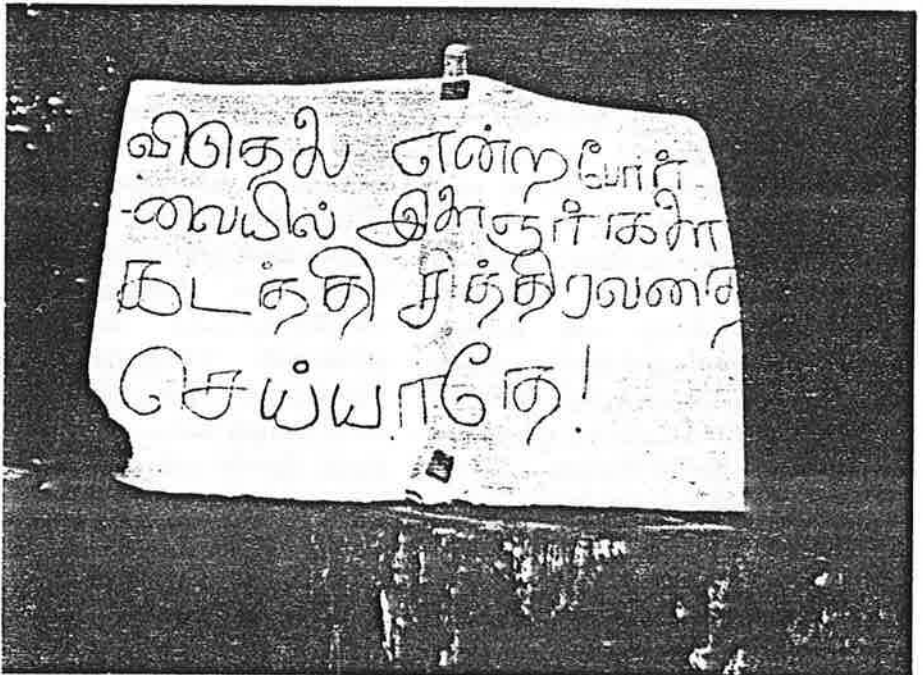 விடுதலை என்ற போர்
-வையில் இளைஞர்களை
கடத்தி சித்திரவதை
செய்யாதே!